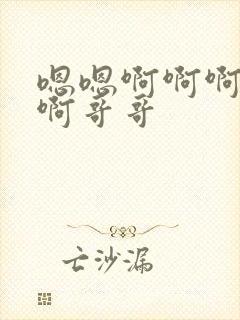 嗯嗯啊啊啊
啊哥哥
亡沙漏